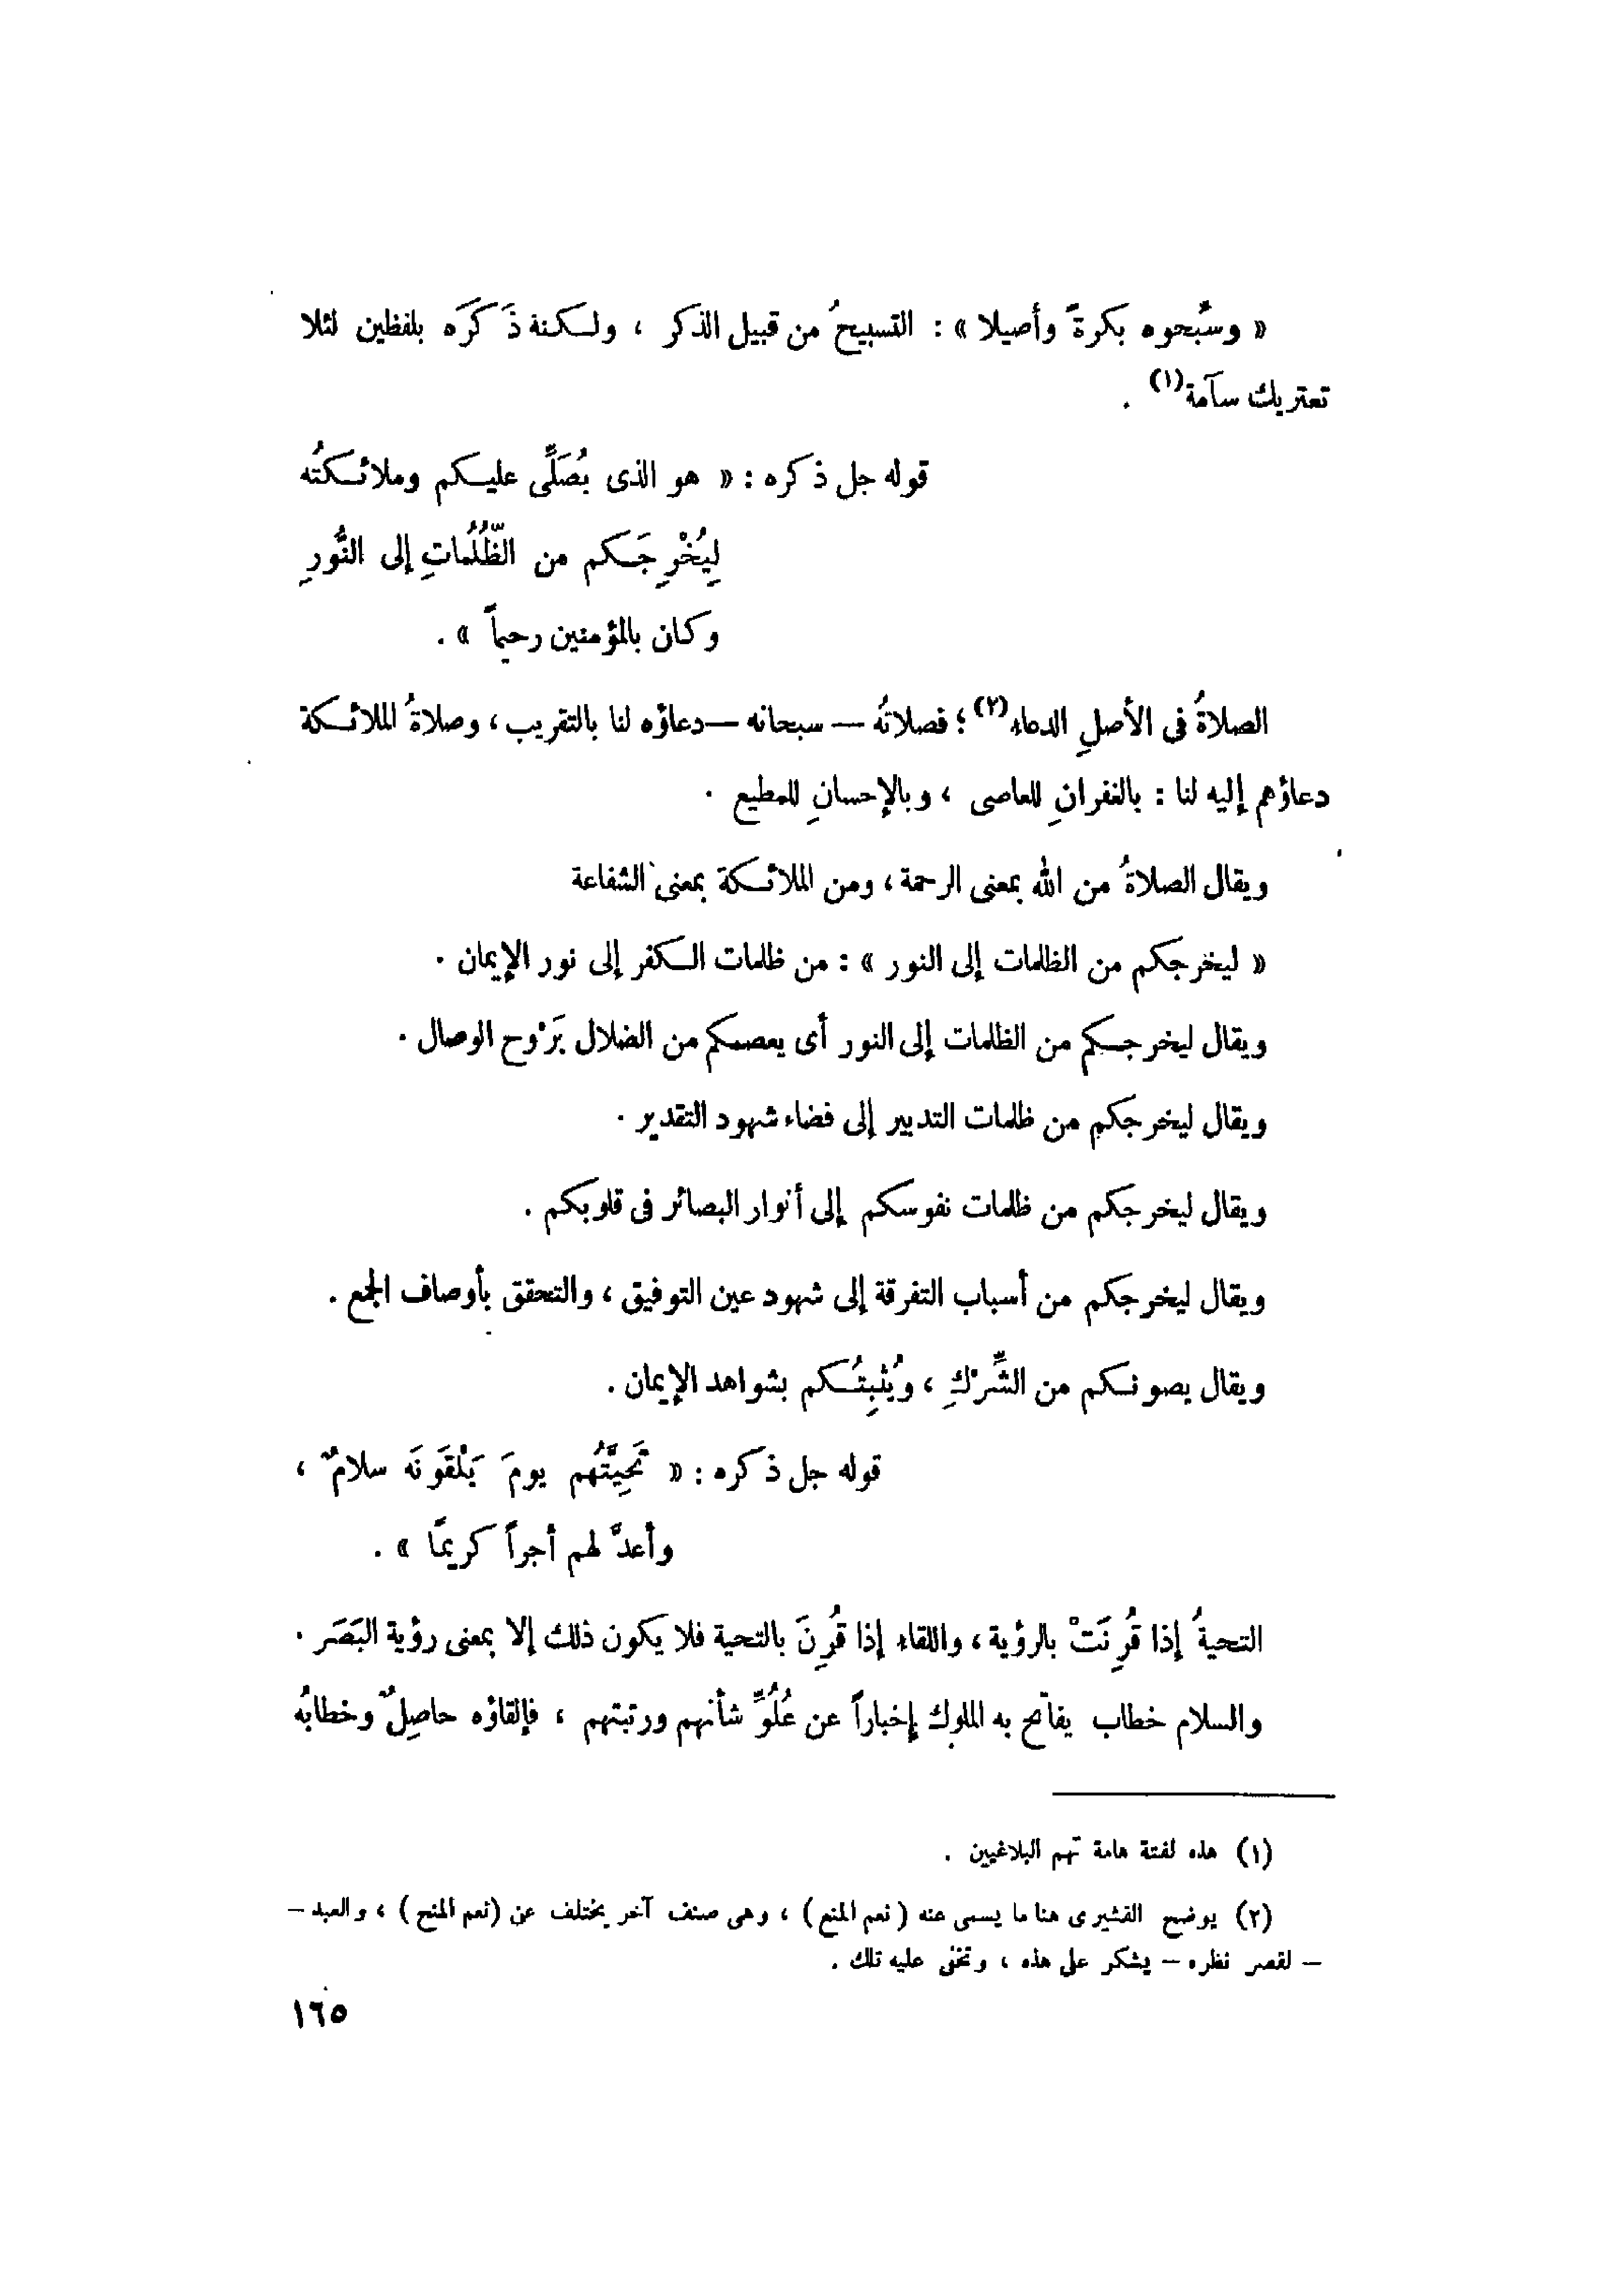 « وسبِّحوه بكرةً وأصيلا » : التسبيحُ من قبيل الذكر ، ولكنة ذَكَرَه بلفظين لئلا
تعتريك سآمة(١) .
قوله جل ذكره : « هو الذى يُصَلِّى عليكم وملائكتُه
لِيُخْرِجَكم من الظُّلُمَاتِ إلى النُّورِ
وكان بالمؤمنين رحيماً » .
الصلاةُ فى الأصلِ الدعاء(٢) ؛ فصلاتُه — سبحانه — دعاؤه لنا بالتقريب ، وصلاةُ الملائكة
دعاؤهم إليه لنا : بالغفرانِ للعاصى ، وبالإحسانِ للمطيع .
ويقال الصلاةُ من الله بمعنى الرحمة ، ومن الملائكة بمعنى الشفاعة
« ليخرجكم من الظلمات إلى النور » : من ظلمات الكفر إلى نور الإيمان .
ويقال ليخرجكم من الظلمات إلى النور أى يعصمكم من الضلال بَرَوْح الوصال .
ويقال ليخرجكم من ظلمات التدبير إلى فضاء شهود التقدير .
ويقال ليخرجكم من ظلمات نفوسكم إلى أنوار البصائر فى قلوبكم .
ويقال ليخرجكم من أسباب التفرقة إلى شهود عين التوفيق ، والتحقق بأوصاف الجمع .
ويقال يصونكم من الشِّرْكِ ، ويُثْبِتُكم بشواهد الإيمان .
قوله جل ذكره : « تَحِيَّتُهم يومَ يَلْقَونَه سلامٌ ،
وأعدَّ لهم أجراً كريمًا » .
التحيةُ إذا قُرِنَتْ بالرؤية ، واللقاء إذا قُرِنَ بالتحية فلا يكون ذلك إلا بمعنى رؤية البَصَر .
والسلام خطاب يفاتح به الملوك إخباراً عن عُلُوِّ شأنهم ورتبتهم ، فإلقاؤه حاصِلٌ وخطابُه
(١) هذه لفتة هامة تهم البلاغيين .
(٢) يوضح القشيرى هنا ما يسمى عنه ( نعم المنع ) ، وهى صنف آخر يختلف عن (نعم المنح ) ، والعبد –
– لقصر نظره – يشكر على هذه ، وتخفى عليه تلك .
١٦٥